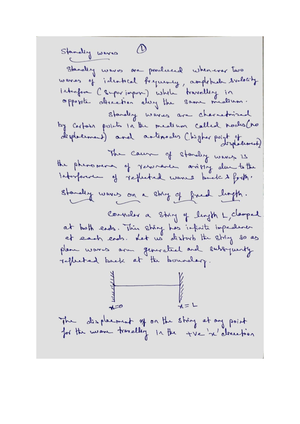 ①
Standing waves
Standing waves are produced whenever two
waves of identical frequency, amplitude & velocity
interfere (superimpose) while travelling in
opposite direction along the same medium.
Standing waves are characterised
by certain points in the medium called nodes (no
displacement) and antinodes (higher point of
displacement)
The cause of standing waves is
the phenomena of resonance arising due to the
interference of reflected waves back & forth.
Standing waves on a string of fixed length.
Consider a string of length L, clamped
at both ends. This string has infinite impedance
at each ends. Let us disturb the string so as
plane waves are generated and subsequently
reflected back at the boundary.
x=0
x=L
The displacement of on the string at any point
for the wave travelling in the +ve 'x' direction